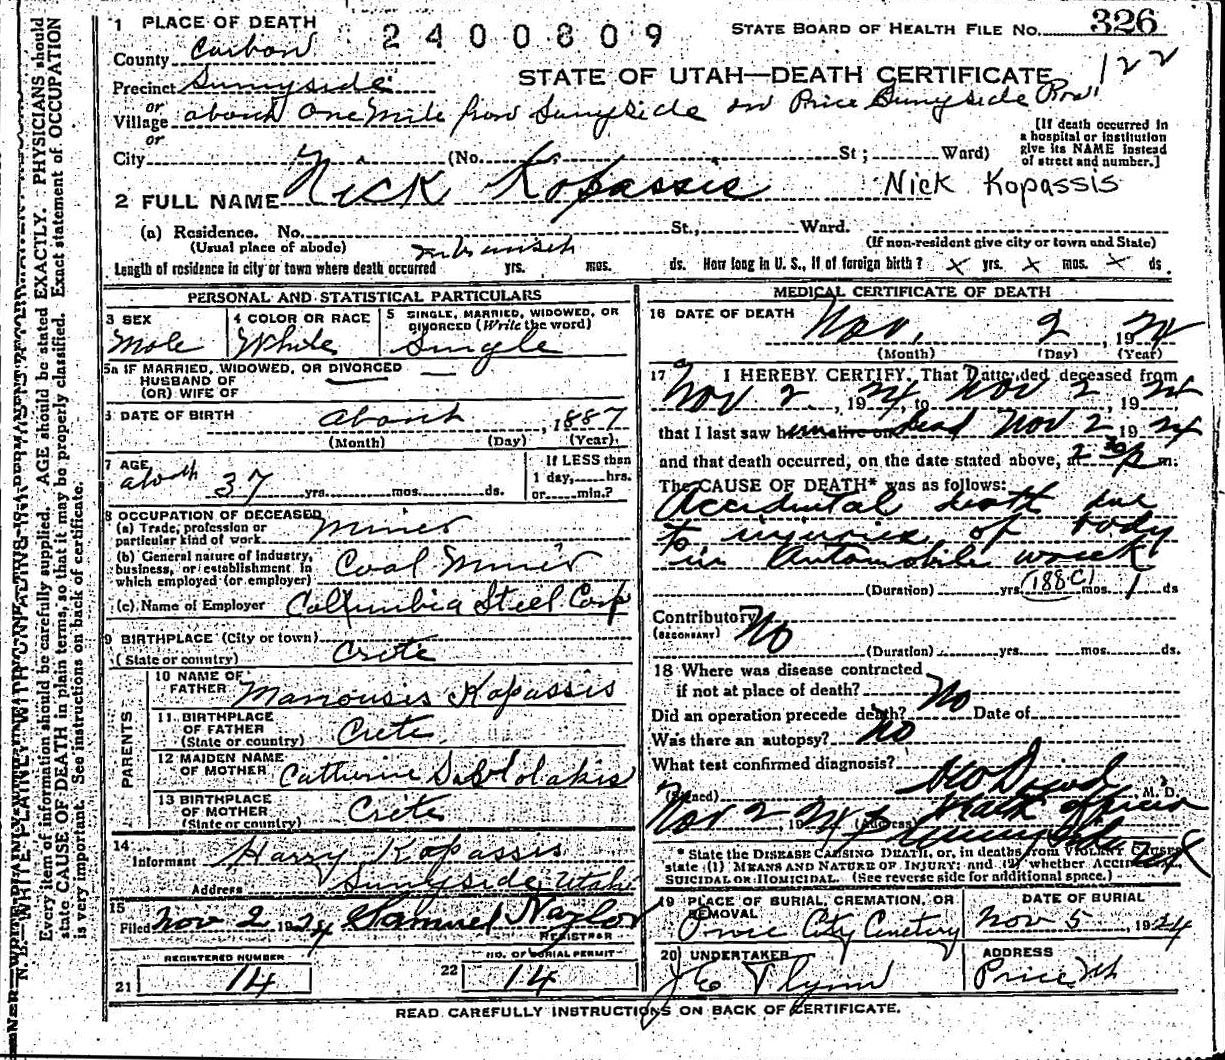 1 PLACE OF DEATH
2400809
STATE BOARD OF HEALTH FILE NO. 326
County Carbon
122
STATE OF UTAH—DEATH CERTIFICATE
Precinct Sunnyside
or
Village about One Mile from Sunnyside on Price Sunnyside
or
[If death occurred in
a hospital or institution
give its NAME instead
of street and number.]
City (No. St; Ward)
2 FULL NAME Nick Kopassis Nick Kopassis
(a) Residence. No. St., Ward.
(Usual place of abode) (If non-resident give city or town and State)
Length of residence in city or town where death occurred yrs. mos. ds. How long in U. S., if of foreign birth? x yrs. x mos. x ds
PERSONAL AND STATISTICAL PARTICULARS
3 SEX
Male
4 COLOR OR RACE
White
5 SINGLE, MARRIED, WIDOWED, OR
DIVORCED (Write the word)
Single
5a IF MARRIED, WIDOWED, OR DIVORCED
HUSBAND OF
(OR) WIFE OF
6 DATE OF BIRTH about , 1887
(Month) (Day) (Year)
7 AGE
about 37 yrs. mos. ds.
If LESS than
1 day, hrs.
or min.?
8 OCCUPATION OF DECEASED
(a) Trade, profession or
particular kind of work Miner
(b) General nature of industry,
business, or establishment in
which employed (or employer) Coal Miner
(c) Name of Employer Collumbia Steel Corp
9 BIRTHPLACE (City or town)
(State or country) Crete
PARENTS
10 NAME OF
FATHER Manousis Kopassis
11 BIRTHPLACE
OF FATHER
(State or country) Crete
12 MAIDEN NAME
OF MOTHER Catherine
13 BIRTHPLACE
OF MOTHER
(State or country) Crete
14
Informant Harry Kopassis
Address Sunnyside, Utah
15
Filed Nov 2 1924 Samuel Naylor
REGISTRAR
REGISTERED NUMBER
21 14
NO. OF BURIAL PERMIT
22 14
MEDICAL CERTIFICATE OF DEATH
16 DATE OF DEATH
Nov. 2, 1924
(Month) (Day) (Year)
17 I HEREBY CERTIFY, That I attended deceased from
Nov 2, 1924, to Nov 2, 1924
that I last saw him alive on dead Nov 2 1924
and that death occurred, on the date stated above, at 2 30 p m.
The CAUSE OF DEATH* was as follows:
Accidental death due
to injuries of body
in Automobile wreck
(Duration) yrs. (188C) mos. 1 ds
Contributory No
(SECONDARY)
(Duration) yrs. mos. ds.
18 Where was disease contracted
if not at place of death? No
Did an operation precede death? Date of
Was there an autopsy? No
What test confirmed diagnosis?
(Signed) M. D.
Nov 2, 1924 (Address) Health Officer
Sunnyside Ut
* State the DISEASE CAUSING DEATH, or, in deaths from VIOLENT CAUSES
state (1) MEANS AND NATURE OF INJURY; and (2) whether ACCIDENTAL
SUICIDAL OR HOMICIDAL. (See reverse side for additional space.)
19 PLACE OF BURIAL, CREMATION, OR
REMOVAL
Price City Cemetery
DATE OF BURIAL
Nov 5, 1924
20 UNDERTAKER
J E Flynn
ADDRESS
Price Ut
READ CAREFULLY INSTRUCTIONS ON BACK OF CERTIFICATE.
Every item of information should be carefully supplied. AGE should be stated EXACTLY. PHYSICIANS should
state CAUSE OF DEATH in plain terms, so that it may be properly classified. Exact statement of OCCUPATION
is very important. See instructions on back of certificate.